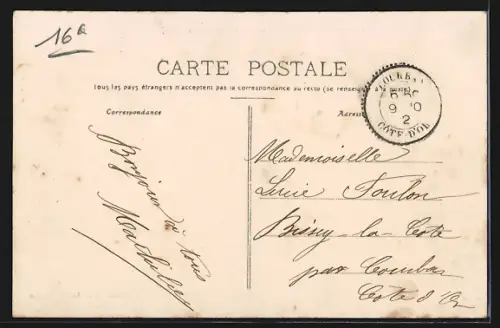 16a
CARTE POSTALE
Tous les pays étrangers n'acceptent pas la correspondance au recto (se renseigner
Correspondance
Adresse
CÔTE-D'OR
Bonjour à tous
Mademoiselle
Lucie Foulon
Bissey-la-Côte
par
Côte d'Or